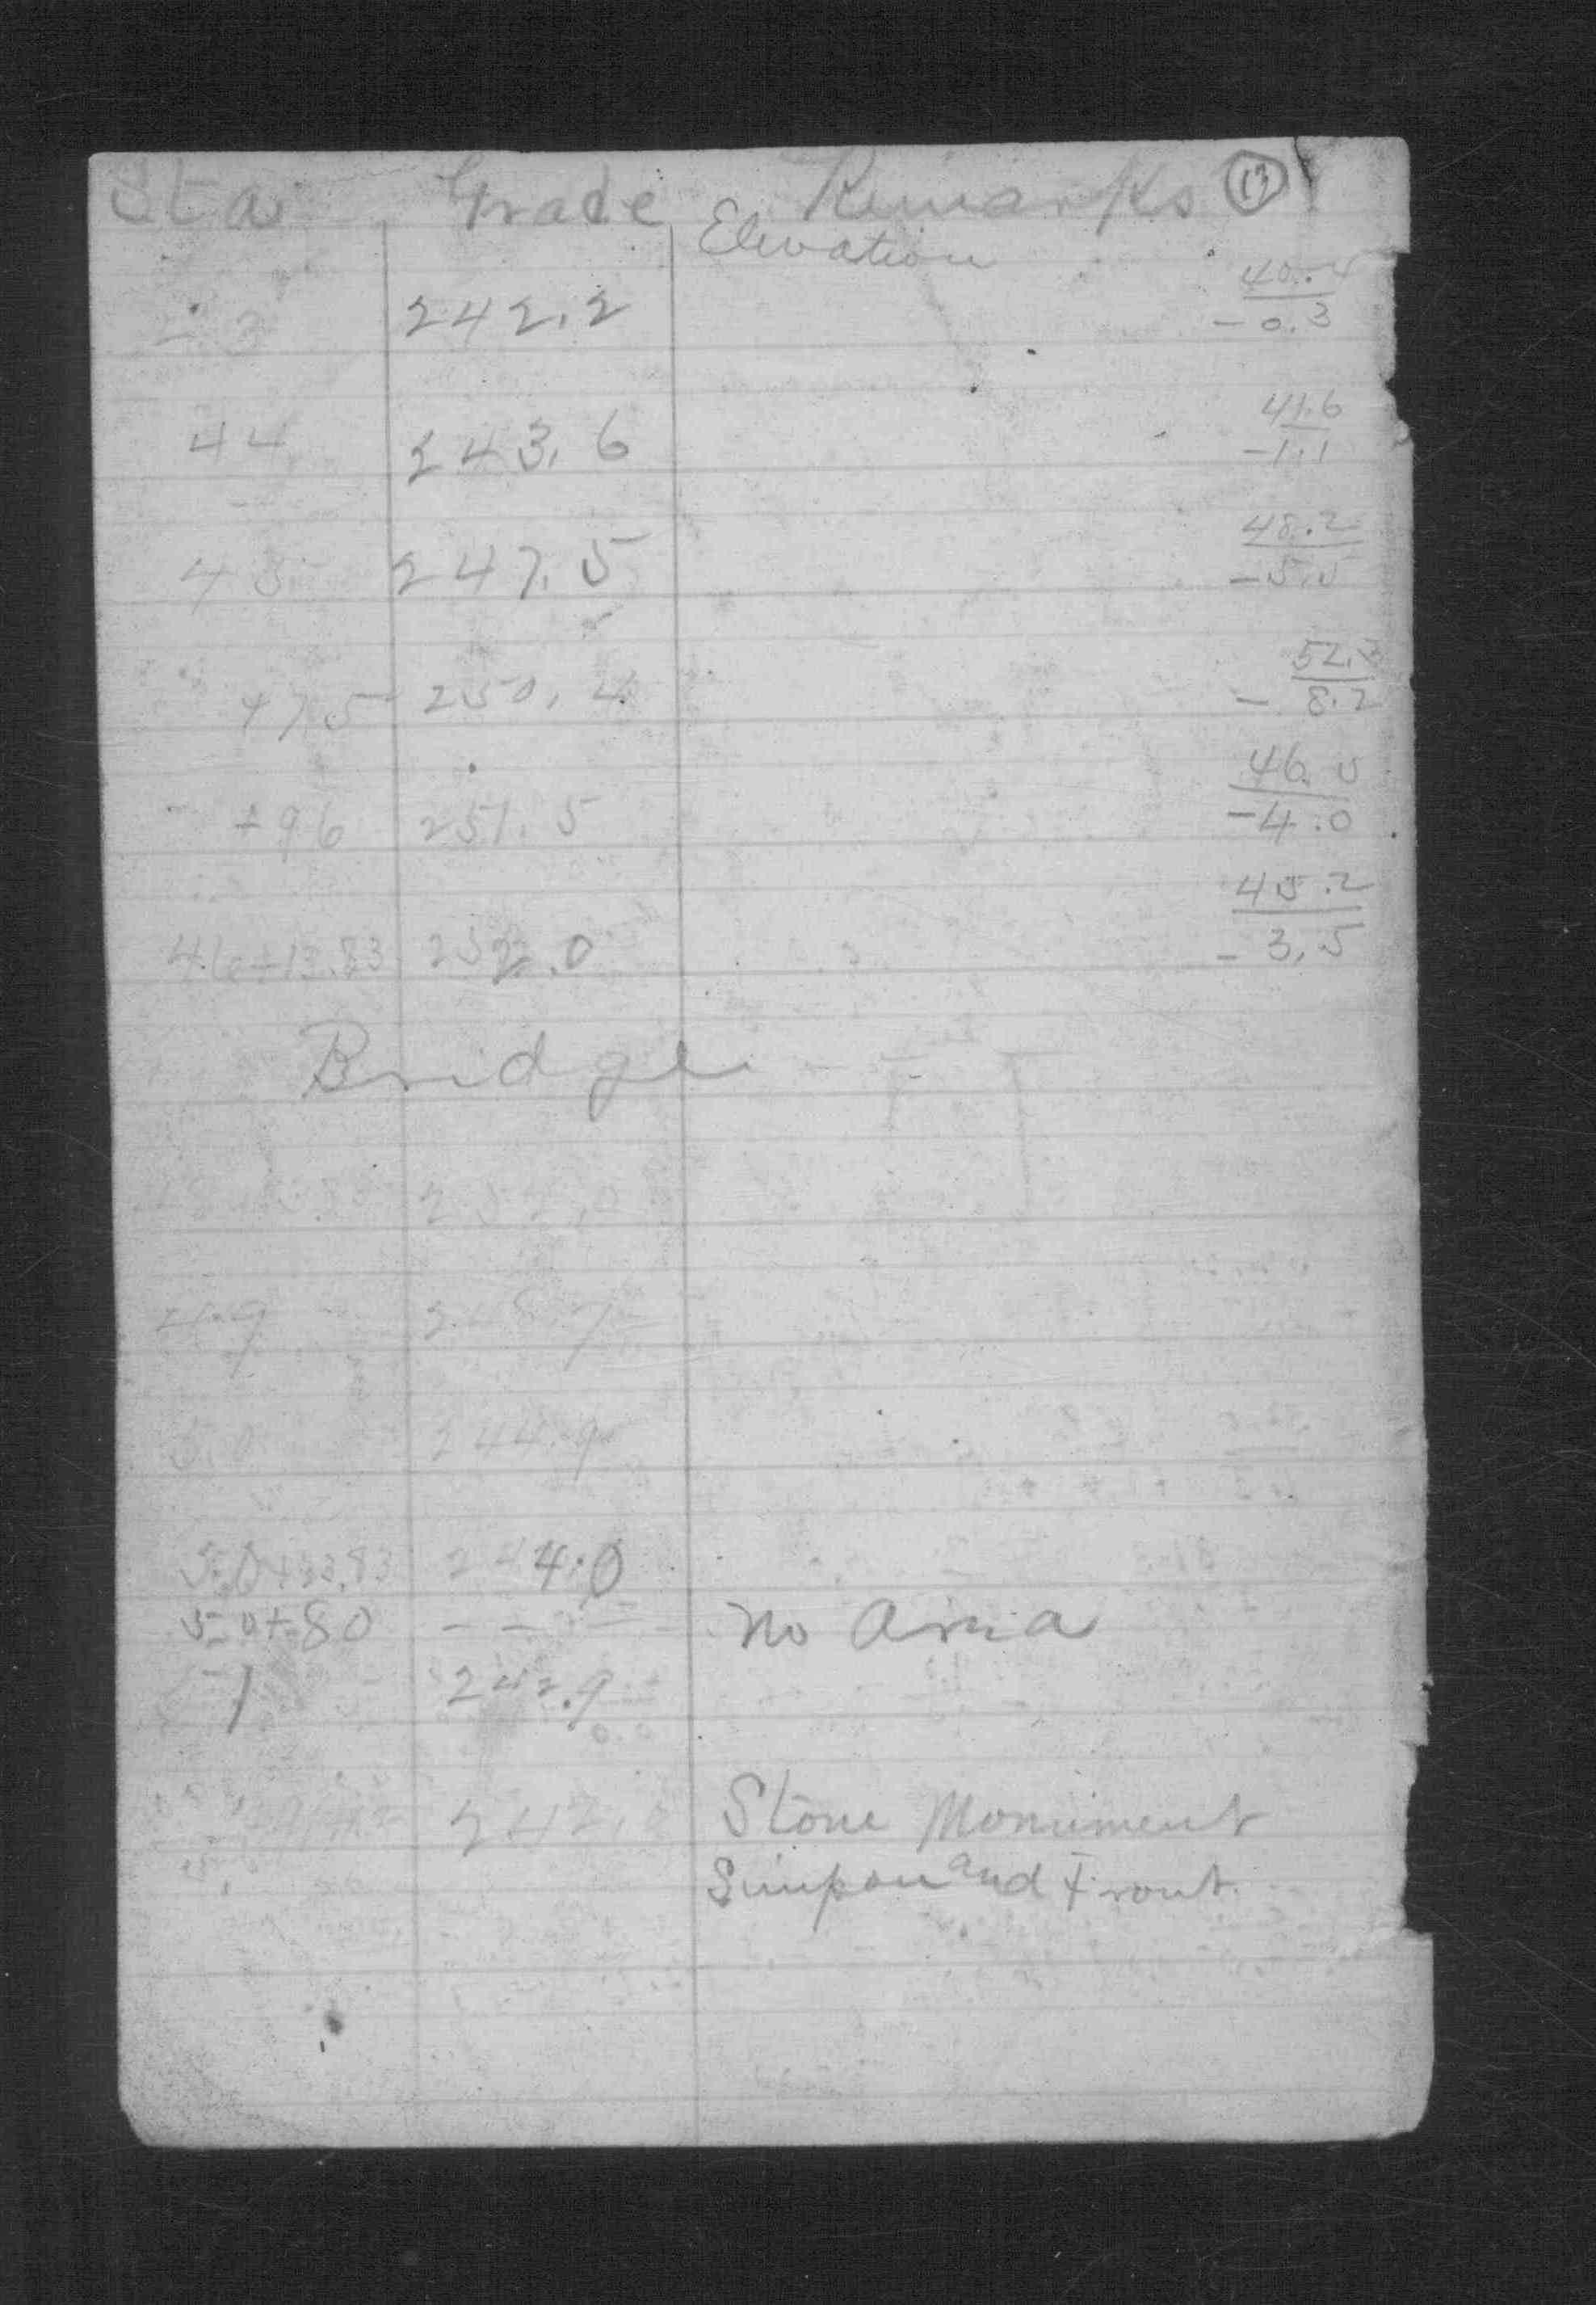 Sta Grade Remarks 13
Elevation
242.2 40.4
-0.3
44 243.6 41.6
-1.1
45 247.5 48.2
-5.5
+75 250.4 52.3
- 8.2
+96 251.5 46.5
-4.0
46+13.83 252.0 45.2
- 3.5
Bridge
252.0
49 248.7
50 244.9
50+33.83 244.0
50+80 - - - No Area
1 242.9
Stone Monument
Simpson and Front